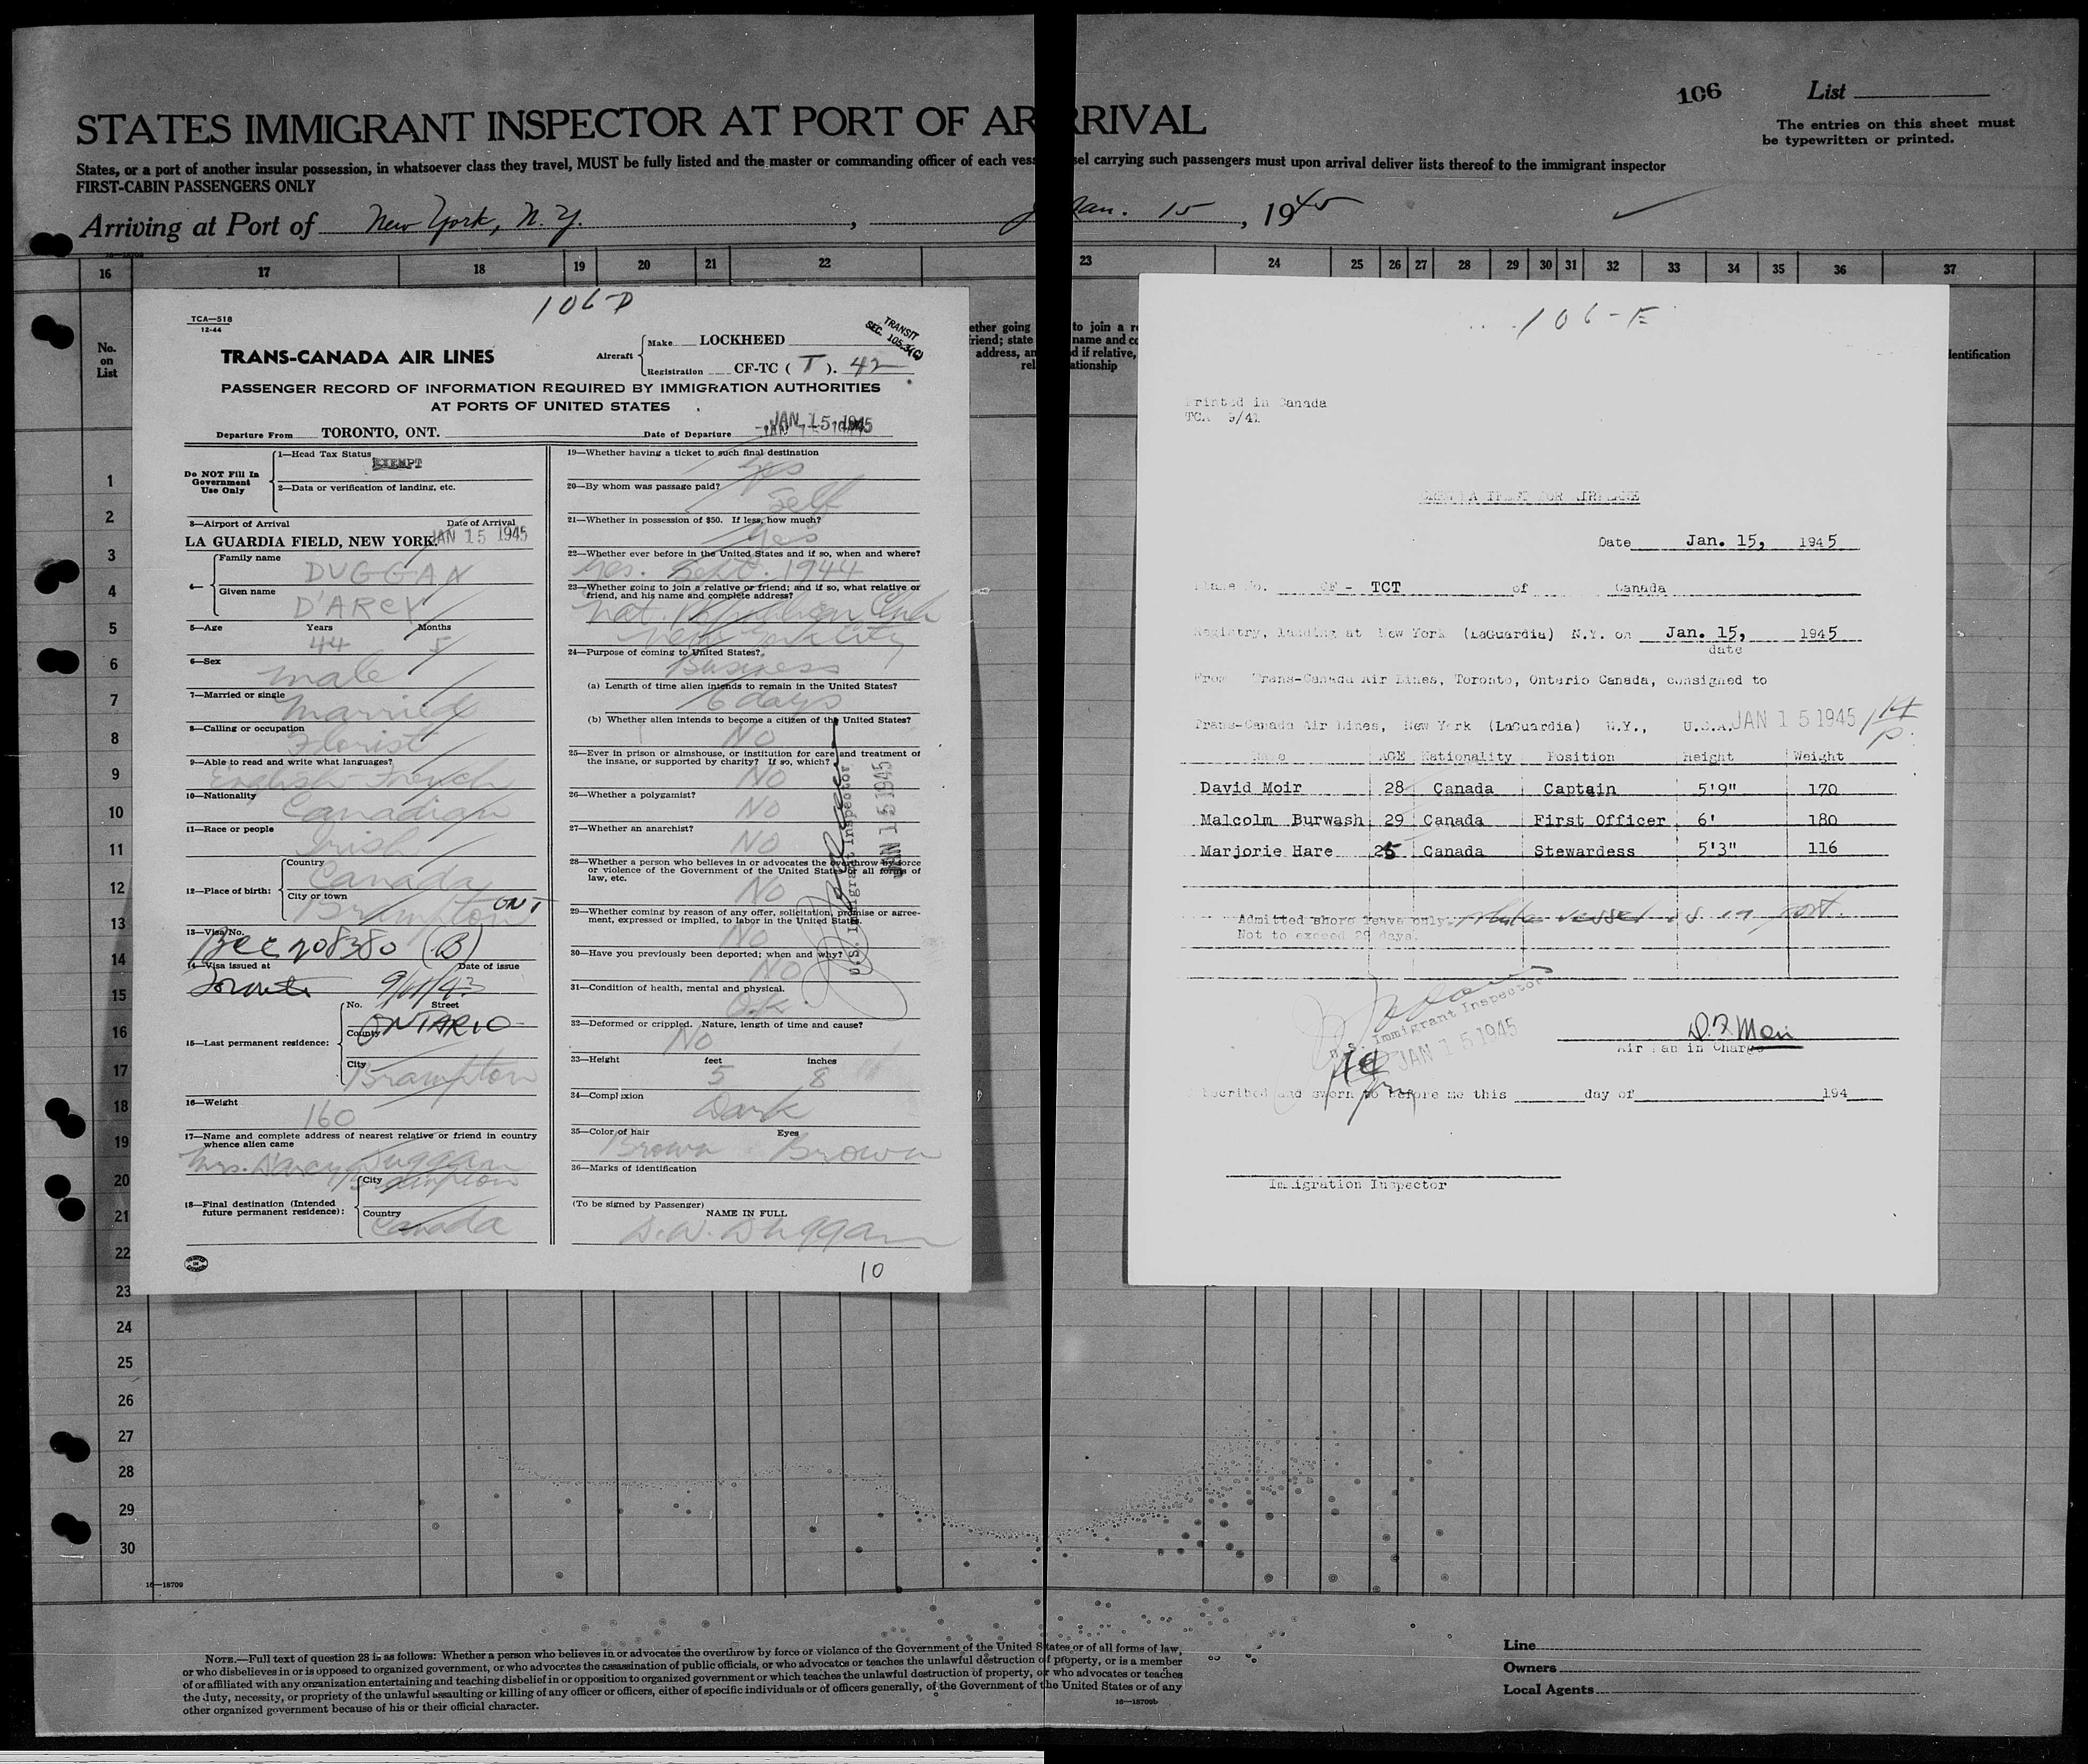 STATES IMMIGRANT INSPECTOR AT PORT OF ARRIVAL
106 List
The entries on this sheet must
be typewritten or printed.
States, or a port of another insular possession, in whatsoever class they travel, MUST be fully listed and the master or commanding officer of each vessel carrying such passengers must upon arrival deliver lists thereof to the immigrant inspector
FIRST-CABIN PASSENGERS ONLY
Arriving at Port of New York, N.Y. , Jan. 15 , 1945
16 17 18 19 20 21 22 23 24 25 26 27 28 29 30 31 32 33 34 35 36 37
No.
on
List
1
2
3
4
5
6
7
8
9
10
11
12
13
14
15
16
17
18
19
20
21
22
23
24
25
26
27
28
29
30
16—18709
106 D
TCA—518
12-44
TRANSIT
SEC. 105.3(C)
TRANS-CANADA AIR LINES
Aircraft
Make LOCKHEED
Registration CF-TC ( T ). 42
PASSENGER RECORD OF INFORMATION REQUIRED BY IMMIGRATION AUTHORITIES
AT PORTS OF UNITED STATES
Departure From TORONTO, ONT. Date of Departure JAN 15 1945
Do NOT Fill In
Government
Use Only
1—Head Tax Status
EXEMPT
2—Data or verification of landing, etc.
3—Airport of Arrival Date of Arrival
LA GUARDIA FIELD, NEW YORK. JAN 15 1945
4—
Family name
DUGGAN
Given name
D'ARCY
5—Age Years Months
44 5
6—Sex
male
7—Married or single
Married
8—Calling or occupation
Florist
9—Able to read and write what languages?
English French
10—Nationality
Canadian
11—Race or people
Irish
12—Place of birth:
Country
Canada
City or town
Brampton ONT
13—Visa No.
BCC 208380 (B)
14—Visa issued at Date of issue
Toronto
15—Last permanent residence:
No. Street
County
ONTARIO
City
Brampton
16—Weight
160
17—Name and complete address of nearest relative or friend in country
whence alien came
Mrs. Darcy Duggan
Brampton
18—Final destination (Intended
future permanent residence):
City
Country
Canada
19—Whether having a ticket to such final destination
Yes
20—By whom was passage paid?
Self
21—Whether in possession of $50. If less, how much?
Yes
22—Whether ever before in the United States and if so, when and where?
Yes. Sept. 1944
23—Whether going to join a relative or friend; and if so, what relative or
friend, and his name and complete address?
Nat. Republican Club
New York City
24—Purpose of coming to United States?
Business
(a) Length of time alien intends to remain in the United States?
6 days
(b) Whether alien intends to become a citizen of the United States?
No
25—Ever in prison or almshouse, or institution for care and treatment of
the insane, or supported by charity? If so, which?
No
26—Whether a polygamist?
No
27—Whether an anarchist?
No
28—Whether a person who believes in or advocates the overthrow by force
or violence of the Government of the United States or all forms of
law, etc.
No
29—Whether coming by reason of any offer, solicitation, promise or agree-
ment, expressed or implied, to labor in the United States.
No
30—Have you previously been deported; when and why?
No
31—Condition of health, mental and physical.
O.K.
32—Deformed or crippled. Nature, length of time and cause?
No
33—Height feet inches
5 8
34—Complexion
Dark
35—Color of hair Eyes
Brown Brown
36—Marks of identification
(To be signed by Passenger)
NAME IN FULL
D.W. Duggan
10
U.S. Immigrant Inspector
JAN 15 1945
ether going
riend; state
address, an
rel
to join a re
name and co
d if relative,
ationship
dentification
106-E
Printed in Canada
TCA 9/41
CREW MANIFEST FOR AIRPLANE
Date Jan. 15, 1945
Plane No. CF - TCT of Canada
Registry, landing at New York (LaGuardia) N.Y. on Jan. 15, 1945
date
From Trans-Canada Air Lines, Toronto, Ontario Canada, consigned to
Trans-Canada Air Lines, New York (LaGuardia) N.Y., U.S.A. JAN 15 1945
Name AGE Nationality Position Height Weight
David Moir 28 Canada Captain 5'9" 170
Malcolm Burwash 29 Canada First Officer 6' 180
Marjorie Hare 25 Canada Stewardess 5'3" 116
Admitted shore leave only. while vessel is in port.
Not to exceed 29 days.
U.S. Immigrant Inspector
JAN 15 1945
D.F. Moir
Air Man in Charge
Subscribed and sworn to before me this day of 194
Immigration Inspector
NOTE.—Full text of question 28 is as follows: Whether a person who believes in or advocates the overthrow by force or violence of the Government of the United States or of all forms of law,
or who disbelieves in or is opposed to organized government, or who advocates the assassination of public officials, or who advocates or teaches the unlawful destruction of property, or is a member
of or affiliated with any organization entertaining and teaching disbelief in or opposition to organized government or which teaches the unlawful destruction of property, or who advocates or teaches
the duty, necessity, or propriety of the unlawful assaulting or killing of any officer or officers, either of specific individuals or of officers generally, of the Government of the United States or of any
other organized government because of his or their official character.
16—18709b
Line
Owners
Local Agents